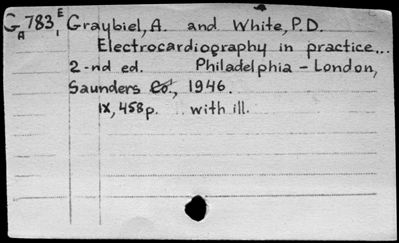 GA783 E1 Graybiel, A. and White, P.D.
Electrocardiography in practice...
2-nd ed. Philadelphia - London,
Saunders Co., 1946.
IX, 458p. with ill.